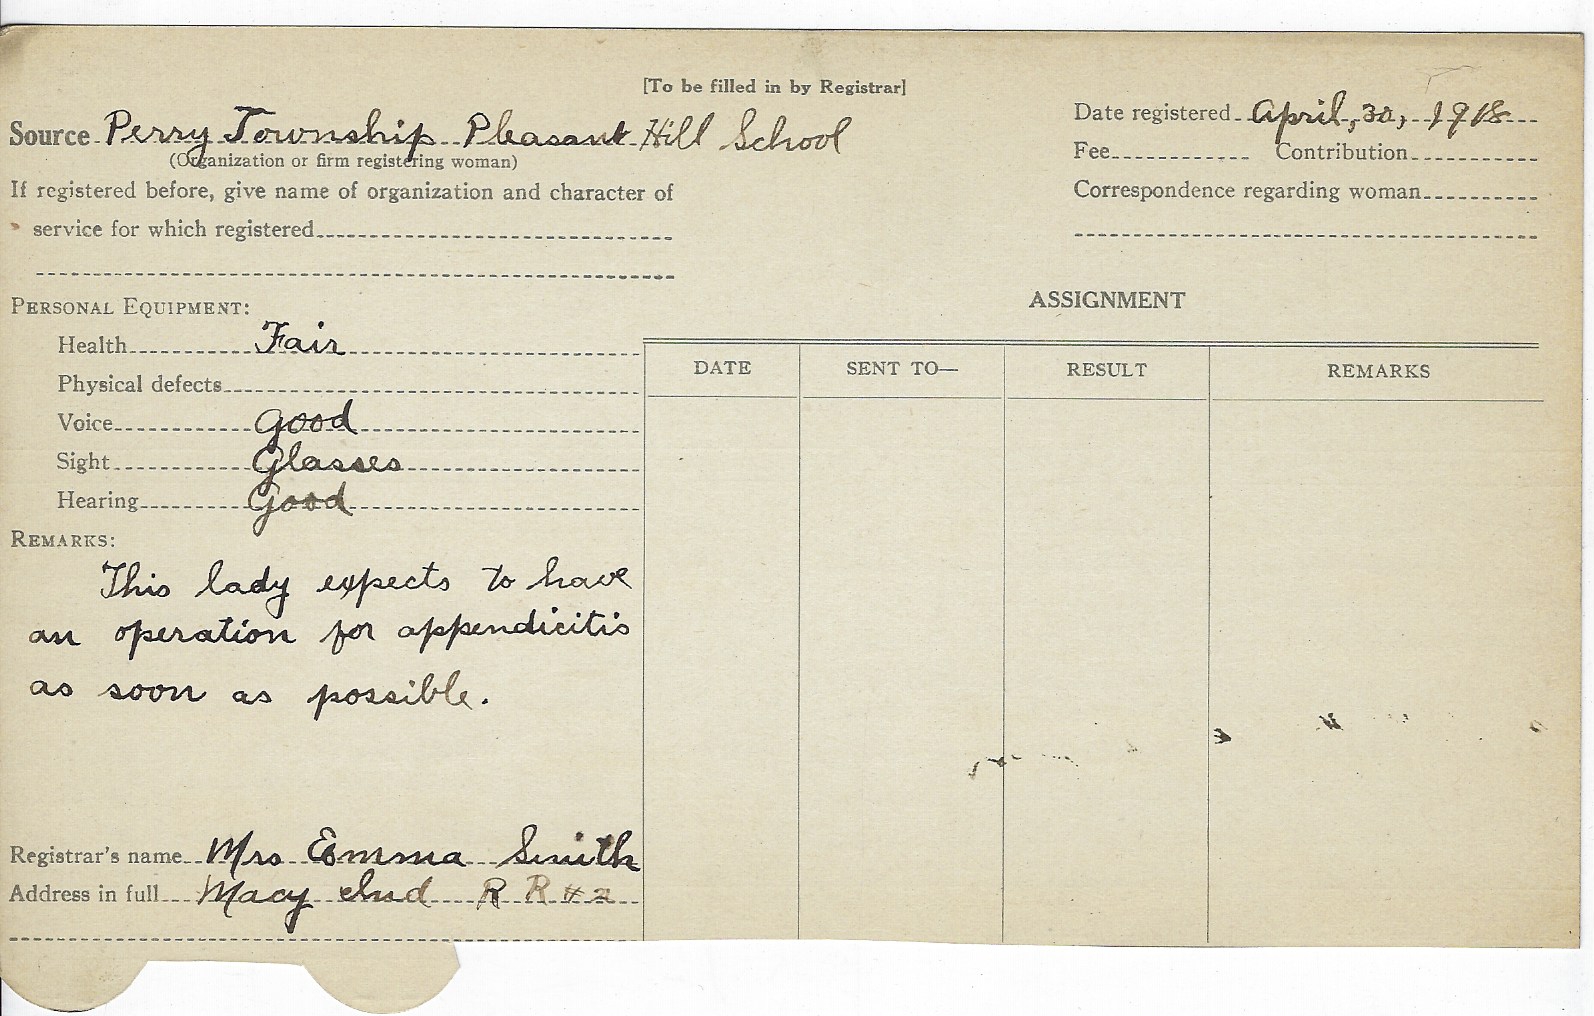 [To be filled in by Registrar]
Source Perry Township Pleasant Hill School
(Organization or firm registering woman)
If registered before, give name of organization and character of
service for which registered
Date registered April, 30, 1918
Fee Contribution
Correspondence regarding woman
PERSONAL EQUIPMENT:
Health Fair
Physical defects
Voice Good
Sight Glasses
Hearing Good
REMARKS:
This lady expects to have
an operation for appendicitis
as soon as possible.
Registrar's name Mrs Emma Smith
Address in full Macy Ind R R #2
ASSIGNMENT
DATE SENT TO— RESULT REMARKS